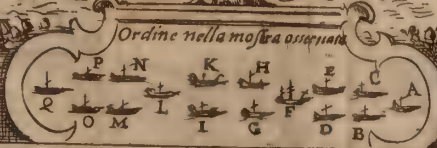 Ordine nella mostra osseruata
P N K H E C
Q L F A
O M I G D B